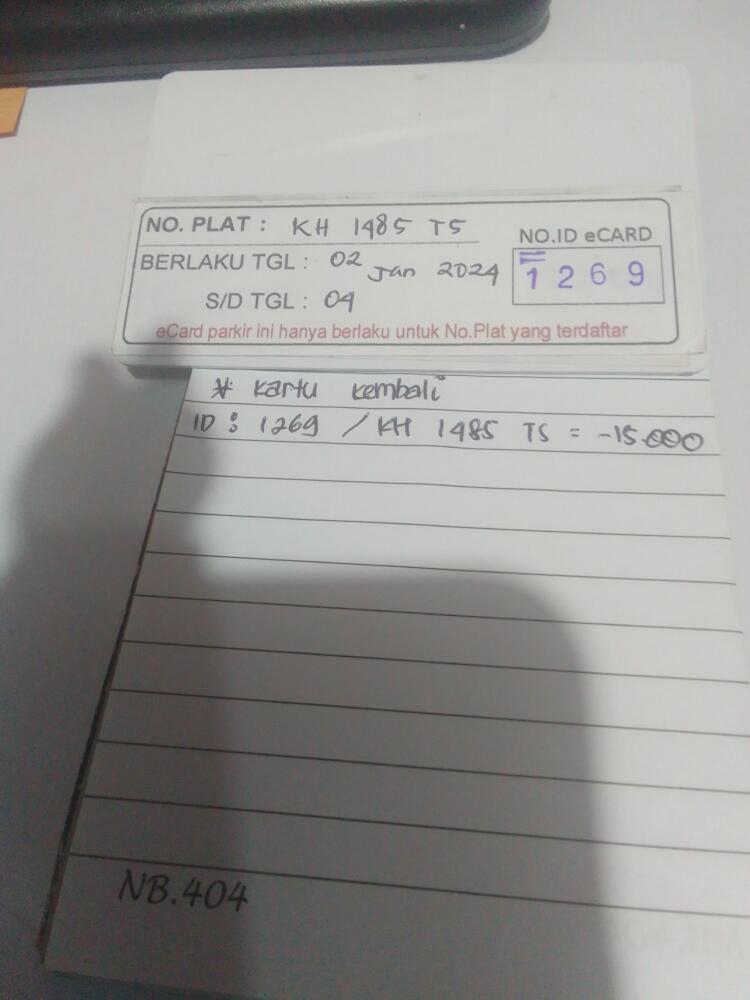 NO. PLAT : KH 1485 TS
NO.ID eCARD
BERLAKU TGL : 02 Jan 2024
1269
S/D TGL : 04
eCard parkir ini hanya berlaku untuk No.Plat yang terdaftar
* Kartu kembali
ID : 1269 / KH 1485 TS = -15.000
NB.404